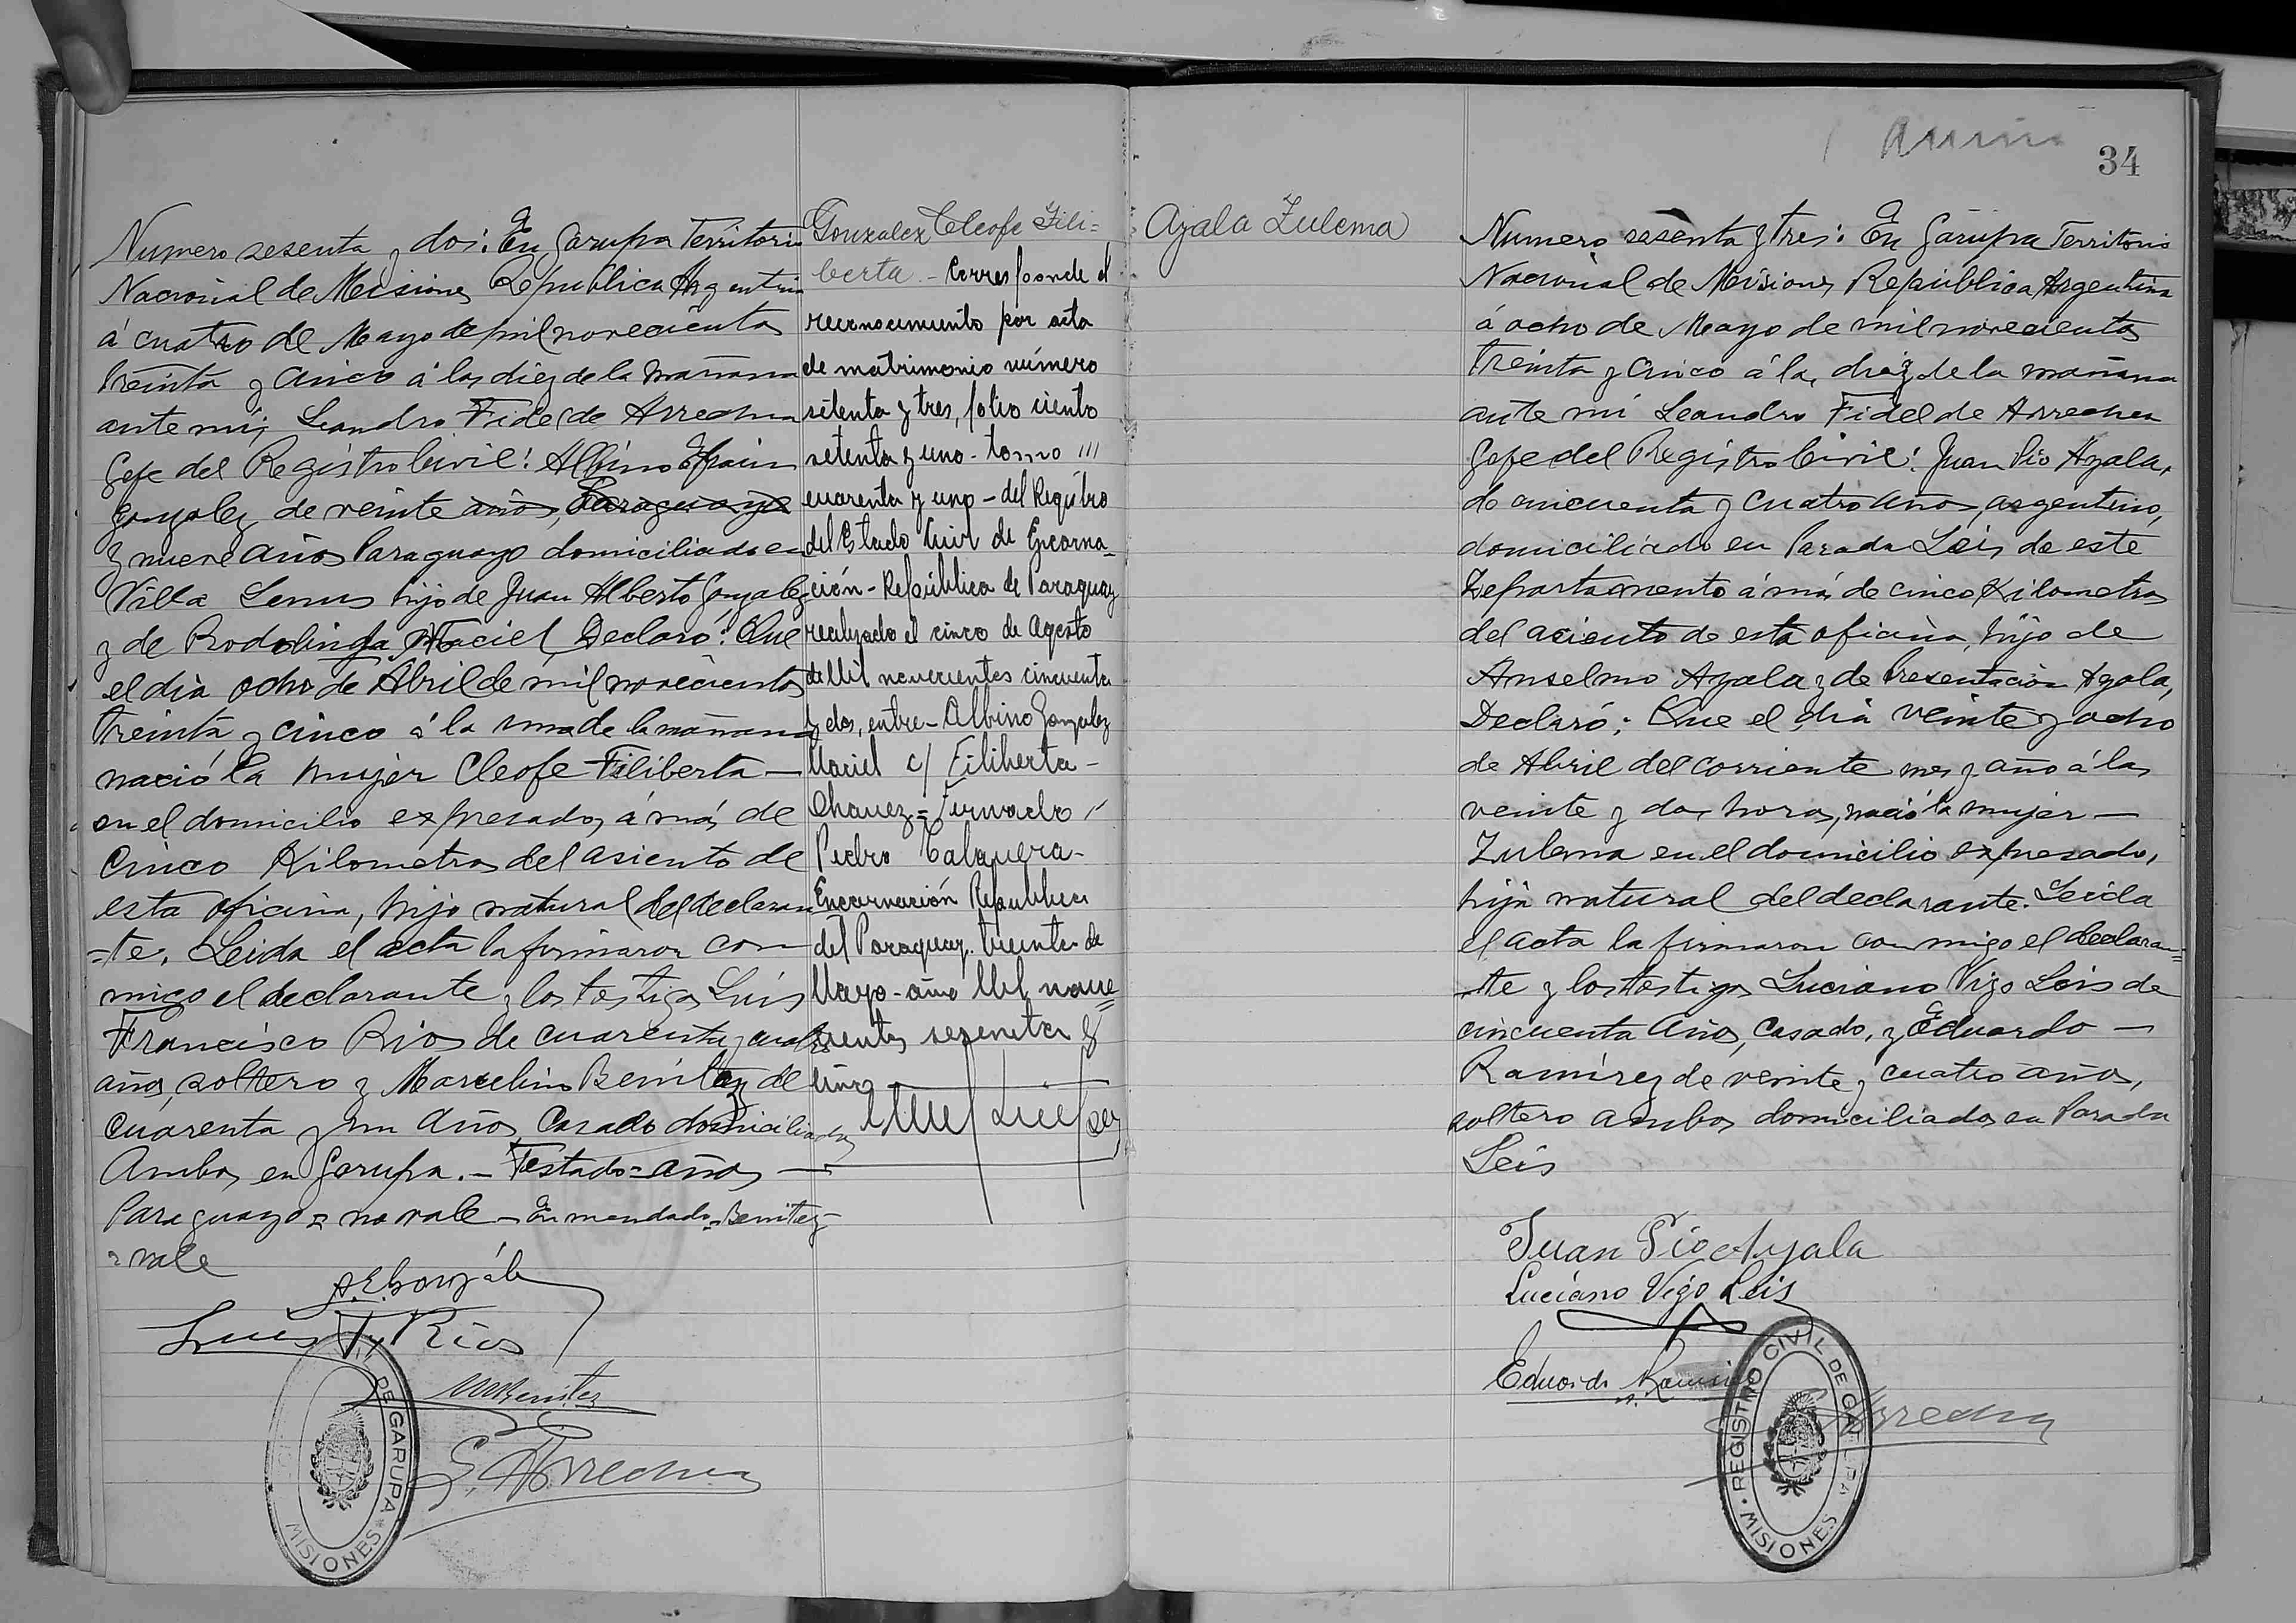 Numero sesenta y dos: En Garupa Territorio
Nacional de Misiones Republica Argentina
á cuatro de Mayo de mil novecientos
treinta y cinco á las diez de la mañana
ante mi, Leandro Fidel de Arrechea
Gefe del Registro Civil: Albino Efrain
Gonzalez de veinte años, Paraguayo
y nueve años Paraguayo domiciliado en
Villa Lenus hijo de Juan Alberto Gonzalez
y de Rodolinda Maciel, Declaró: Que
el dia ocho de Abril de mil novecientos
treinta y cinco á la una de la mañana
nació la mujer Cleofe Filiberta —
en el domicilio expresado, á más de
Cinco Kilometros del asiento de
esta oficina, hijo natural del declaran
=te. Leida el acta la firmaron con
migo el declarante y los testigos Luis
Francisco Rios de cuarenta y cuatro
años, soltero y Marcelino Benitez de
cuarenta y un años, Casado domiciliados
Ambos en Garupa. — Testado = años —
Paraguayo = no vale — Enmendado = Benitez =
= vale
A.E. Gonzále
Luis F. Rios
MBenitez
L. Arrechea
DE GARUPA
MISIONES
Gonzalez Cleofe Fili=
berta - Corresponde el
reconocimiento por acta
de matrimonio número
setenta y tres, folio ciento
setenta y uno - tomo III
cuarenta y uno - del Registro
del Estado Civil de Encarna_
ción - República de Paraguay
realizado el cinco de Agosto
de Mil novecientos cincuenta
y dos, entre - Albino Gonzalez
Maciel c/ Filiberta -
Chavez = Firmado /
Pedro Talavera -
Encarnación Republica
del Paraguay. treinta de
Mayo - año Mil nove=
cientos sesenta y
uno
34
Ayala Zulema
Numero sesenta y tres: En Garupa Territorio
Nacional de Misiones Republica Argentina
á ocho de Mayo de mil novecientos
treinta y cinco á las diez de la mañana
ante mi Leandro Fidel de Arrechea
Gefe del Registro Civil: Juan Pio Ayala,
de cincuenta y cuatro años, argentino,
domiciliado en Parada Leis de este
Departamento á más de cinco Kilometros
del aciento de esta oficina, hijo de
Anselmo Ayala y de Presentación Ayala,
Declaró: Que el dia veinte y ocho
de Abril del corriente mes y año á las
veinte y dos horas, nació la mujer —
Zulema en el domicilio expresado,
hija natural del declarante. Leida
el acta la firmaron conmigo el declaran=
=te y los testigos Luciano Vigo Leis de
cincuenta años, casado, y Eduardo —
Ramirez de veinte y cuatro años,
soltero ambos domiciliados en Parada
Leis
Juan Pio Ayala
Luciano Vigo Leis
Eduardo Ramirez
Arrechea
REGISTRO CIVIL DE GARUPA
MISIONES